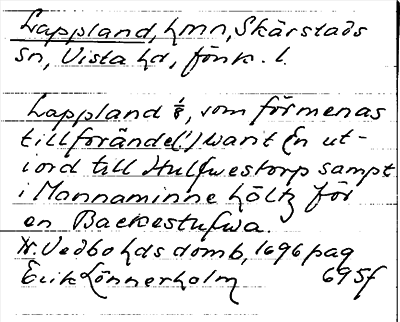 Lappland, hmn, Skärstads
sn, Vista hd, Jönk. l.
Lappland 1/8, som förmenas
tillförände(!) warit En ut-
iord till Hulfwestorp sampt
i Mannaminne höltz för
en Backestufwa.
N. Vedbo hds domb, 1696 pag
Erik Lönnerholm 695f